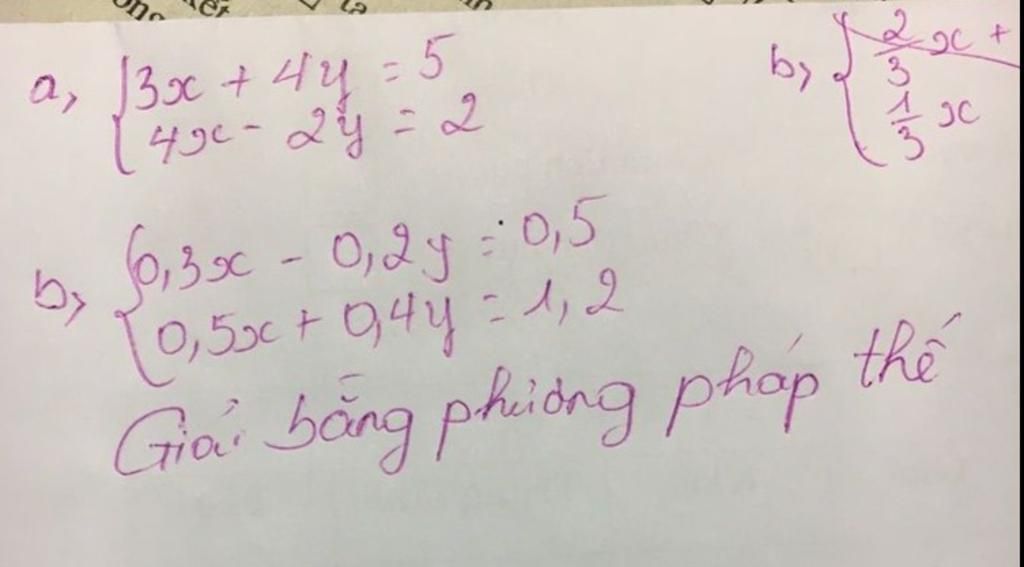 a, 3x + 4y = 5
4x - 2y = 2
b, 2/3 x +
1/3 x
b, 0,3x - 0,2y = 0,5
0,5x + 0,4y = 1,2
Giải bằng phương pháp thế